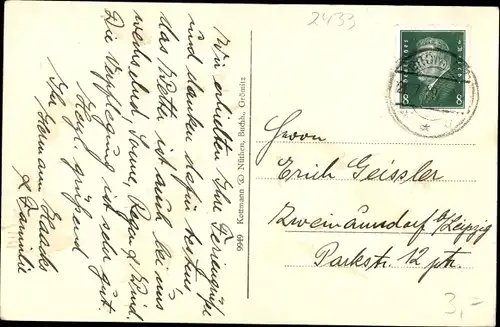 2433
Wir erhielten Ihre Feriengrüße
und danken dafür bestens,
das Wetter ist auch bei uns
wechselnd, Sonne, Regen & Wind.
Die Verpflegung ist sehr gut.
Herzl. grüßend
Ihr Hermann Haacke
& Familie
6649 Kottmann Nüthen, Buchh., Grömitz
8 8
Herrn
Erich Geissler
Zweinaundorf b/Leipzig
Parkstr. 12 ptr.
3,-